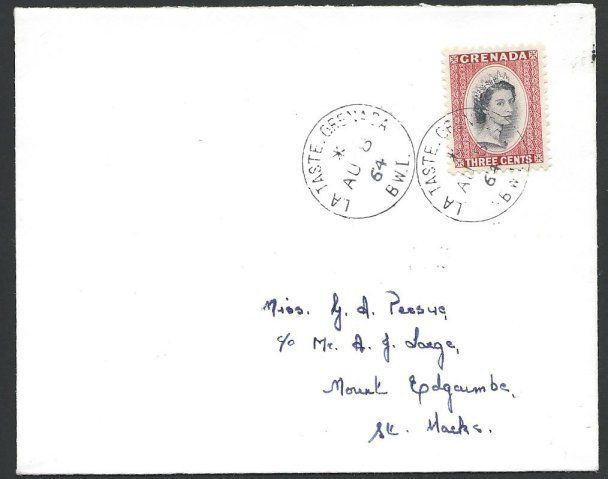 GRENADA
THREE CENTS
LA TASTE. GRENADA
* AU 5 64
B.W.I.
LA TASTE. GRE
* AU 64
B.W.I.
Miss. G. A. Persue,
c/o Mr. A. J. Large,
Mount Edgcumbe,
St. Marks.